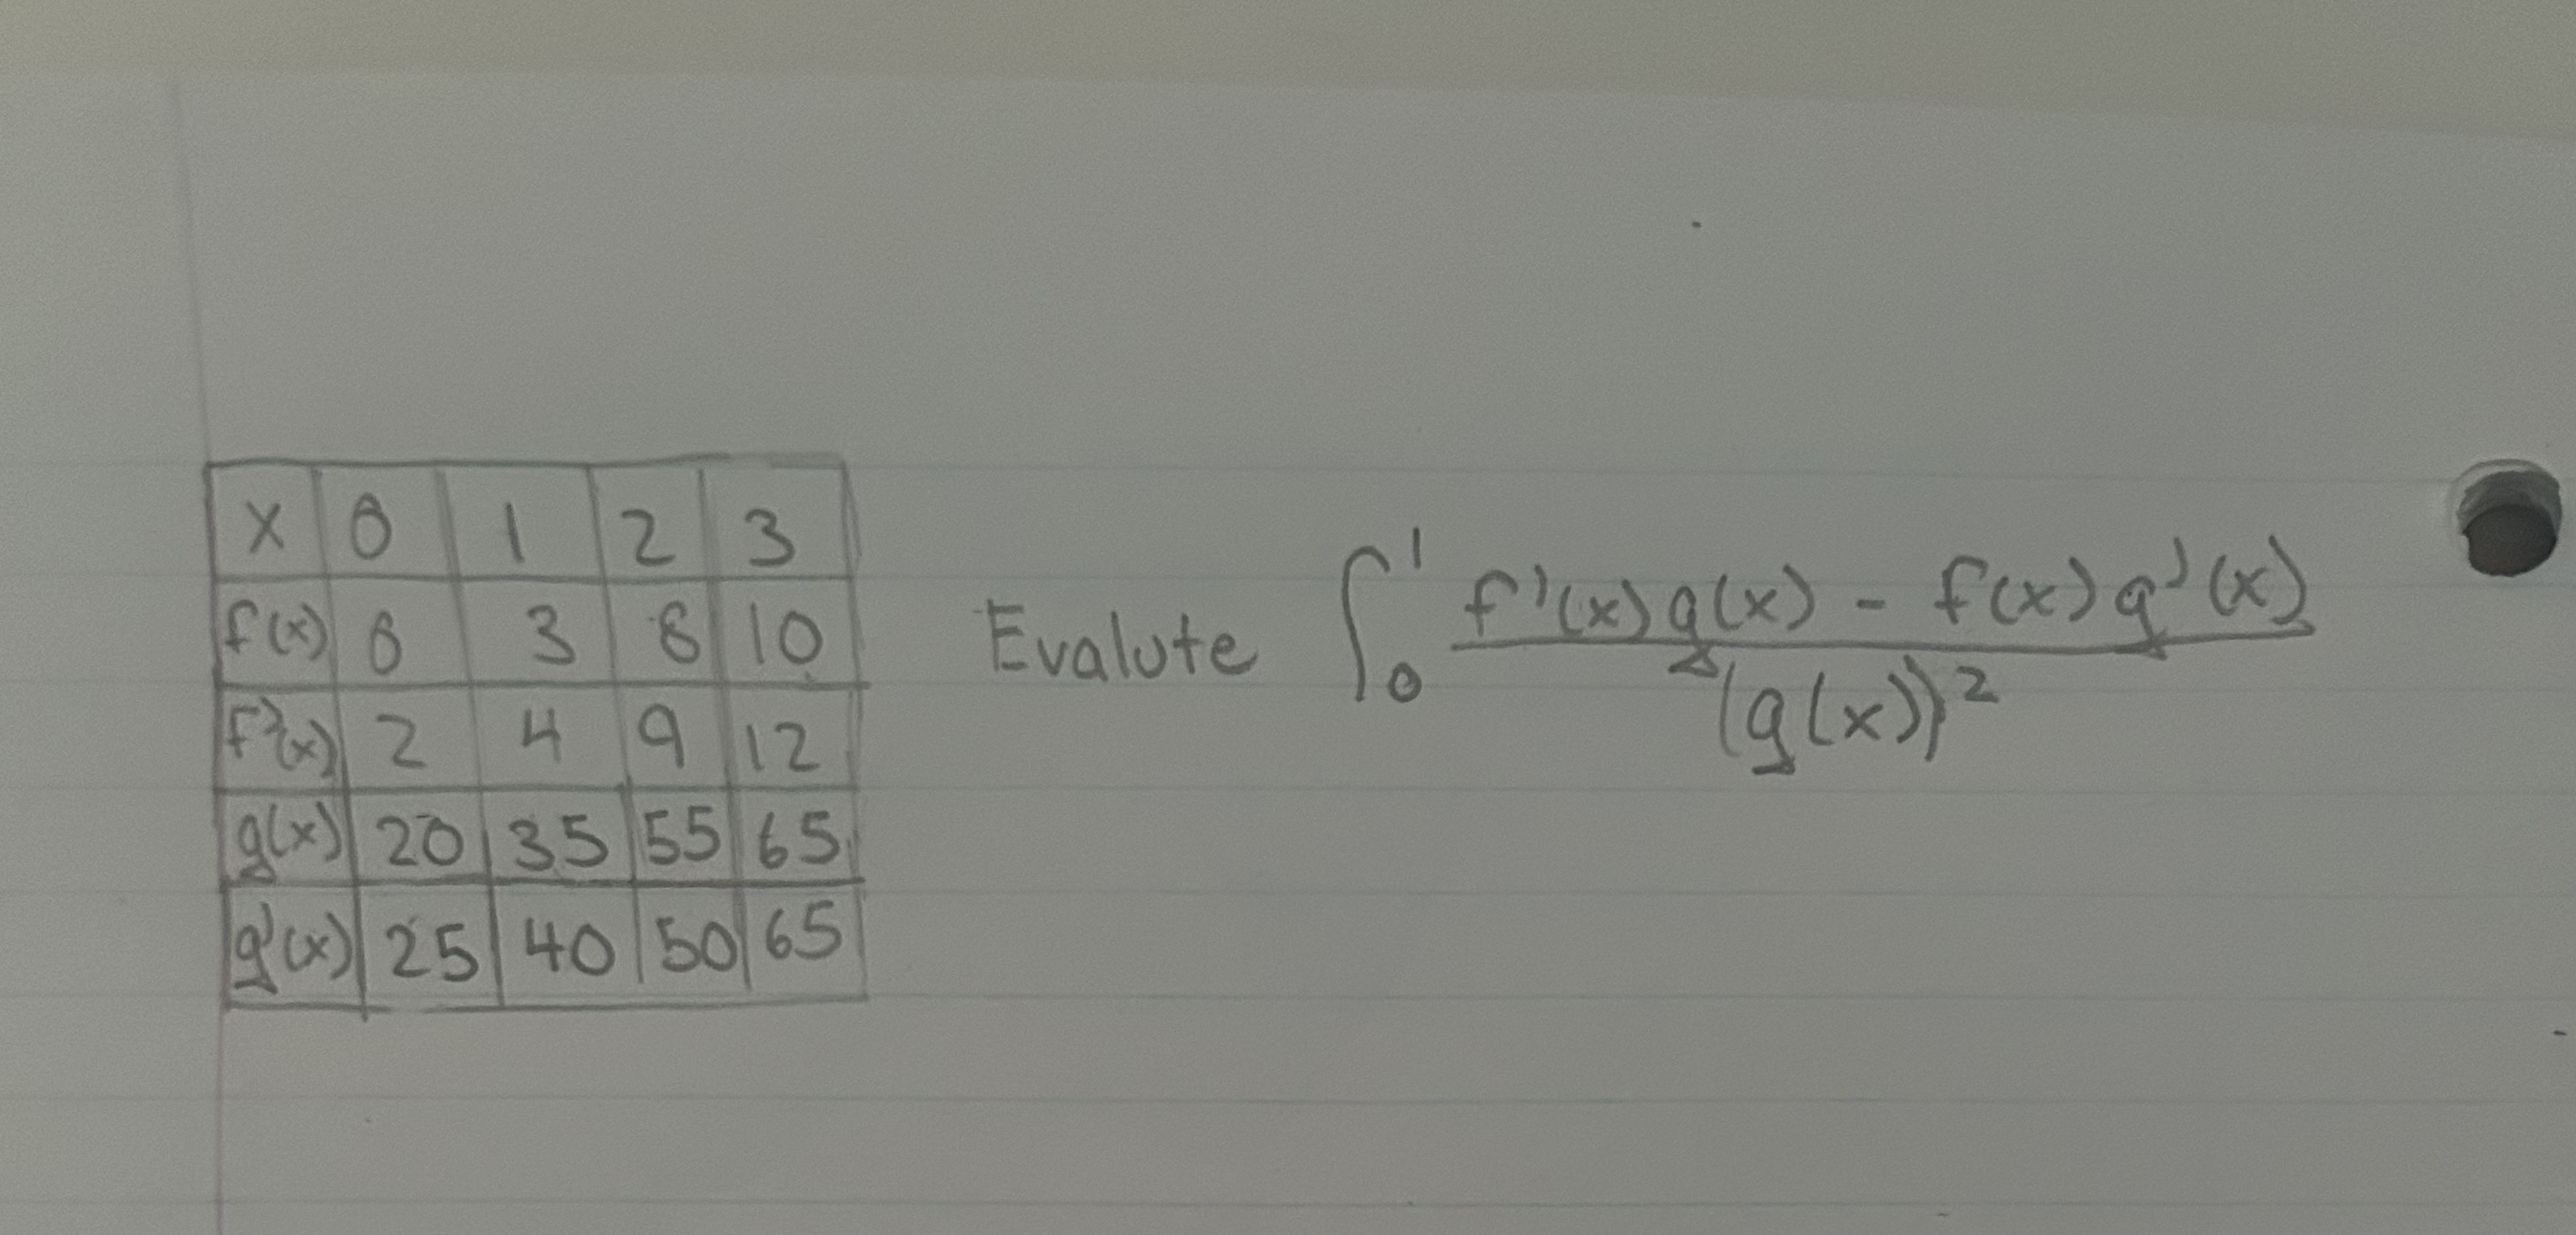 x 0 1 2 3
f(x) 0 3 8 10
f'(x) 2 4 9 12
g(x) 20 35 55 65
g'(x) 25 40 50 65
Evalute ∫₀¹ f'(x)g(x) - f(x)g'(x) / (g(x))²